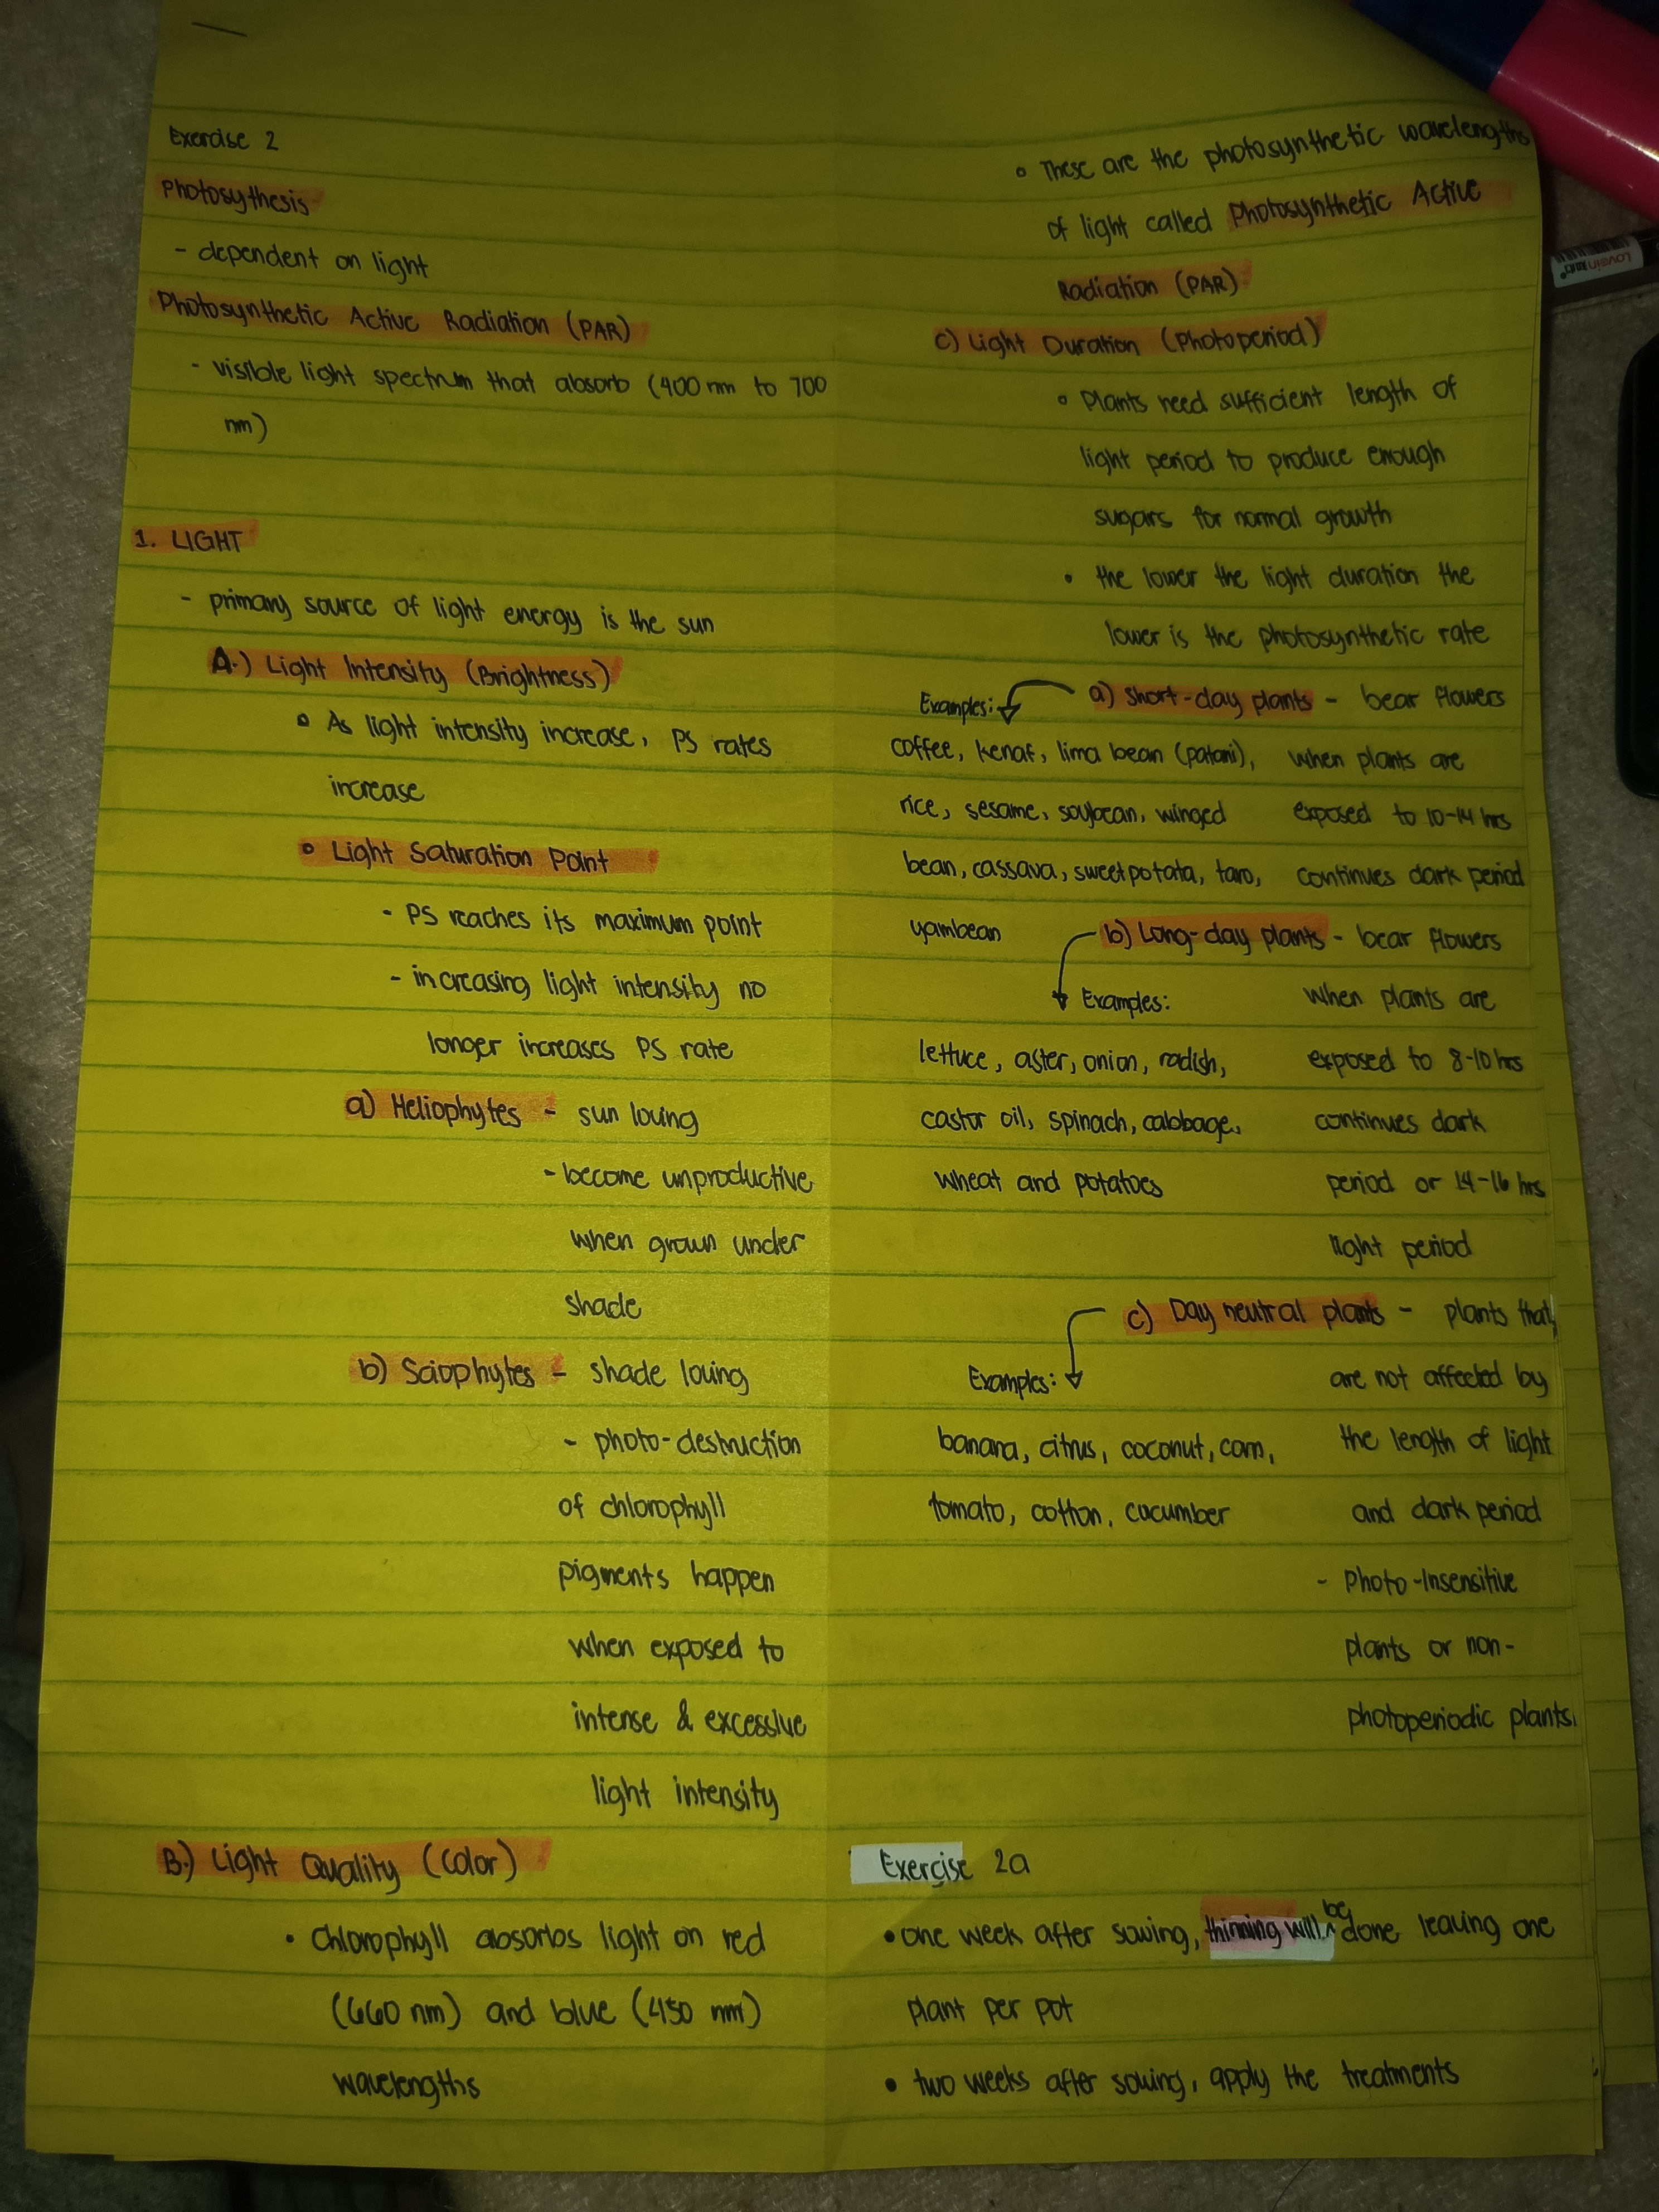 Exercise 2
Photosythesis
- dependent on light
Photosynthetic Active Radiation (PAR)
- visible light spectrum that absorb (400 nm to 700
nm)
1. LIGHT
- primary source of light energy is the sun
A.) Light Intensity (Brightness)
° As light intensity increase, PS rates
increase
° Light Saturation Point
- PS reaches its maximum point
- increasing light intensity no
longer increases PS rate
a) Heliophytes - sun loving
- become unproductive
when grown under
shade
b) Sciophytes - shade loving
- photo-destruction
of chlorophyll
pigments happen
when exposed to
intense & excessive
light intensity
B.) Light Quality (Color)
• Chlorophyll absorbs light on red
(660 nm) and blue (450 nm)
wavelengths
° These are the photosynthetic wavelengths
of light called Photosynthetic Active
Radiation (PAR)
c) Light Duration (Photoperiod)
° Plants need sufficient length of
light period to produce enough
sugars for normal growth
• the lower the light duration the
lower is the photosynthetic rate
a) Short-day plants - bear flowers
when plants are
exposed to 10-14 hrs
continues dark period
Examples:
coffee, kenaf, lima bean (patani),
rice, sesame, soybean, winged
bean, cassava, sweetpotata, taro,
yambean
b) Long-day plants - bear flowers
when plants are
exposed to 8-10 hrs
continues dark
period or 14-16 hrs
light period
Examples:
lettuce, aster, onion, radish,
castor oil, spinach, cabbage,
wheat and potatoes
c) Day neutral plants - plants that
are not affected by
the length of light
and dark period
- Photo-Insensitive
plants or non-
photoperiodic plants.
Examples:
banana, citrus, coconut, corn,
tomato, cotton, cucumber
Exercise 2a
• one week after sowing, thinning will be done leaving one
plant per pot
• two weeks after sowing, apply the treatments